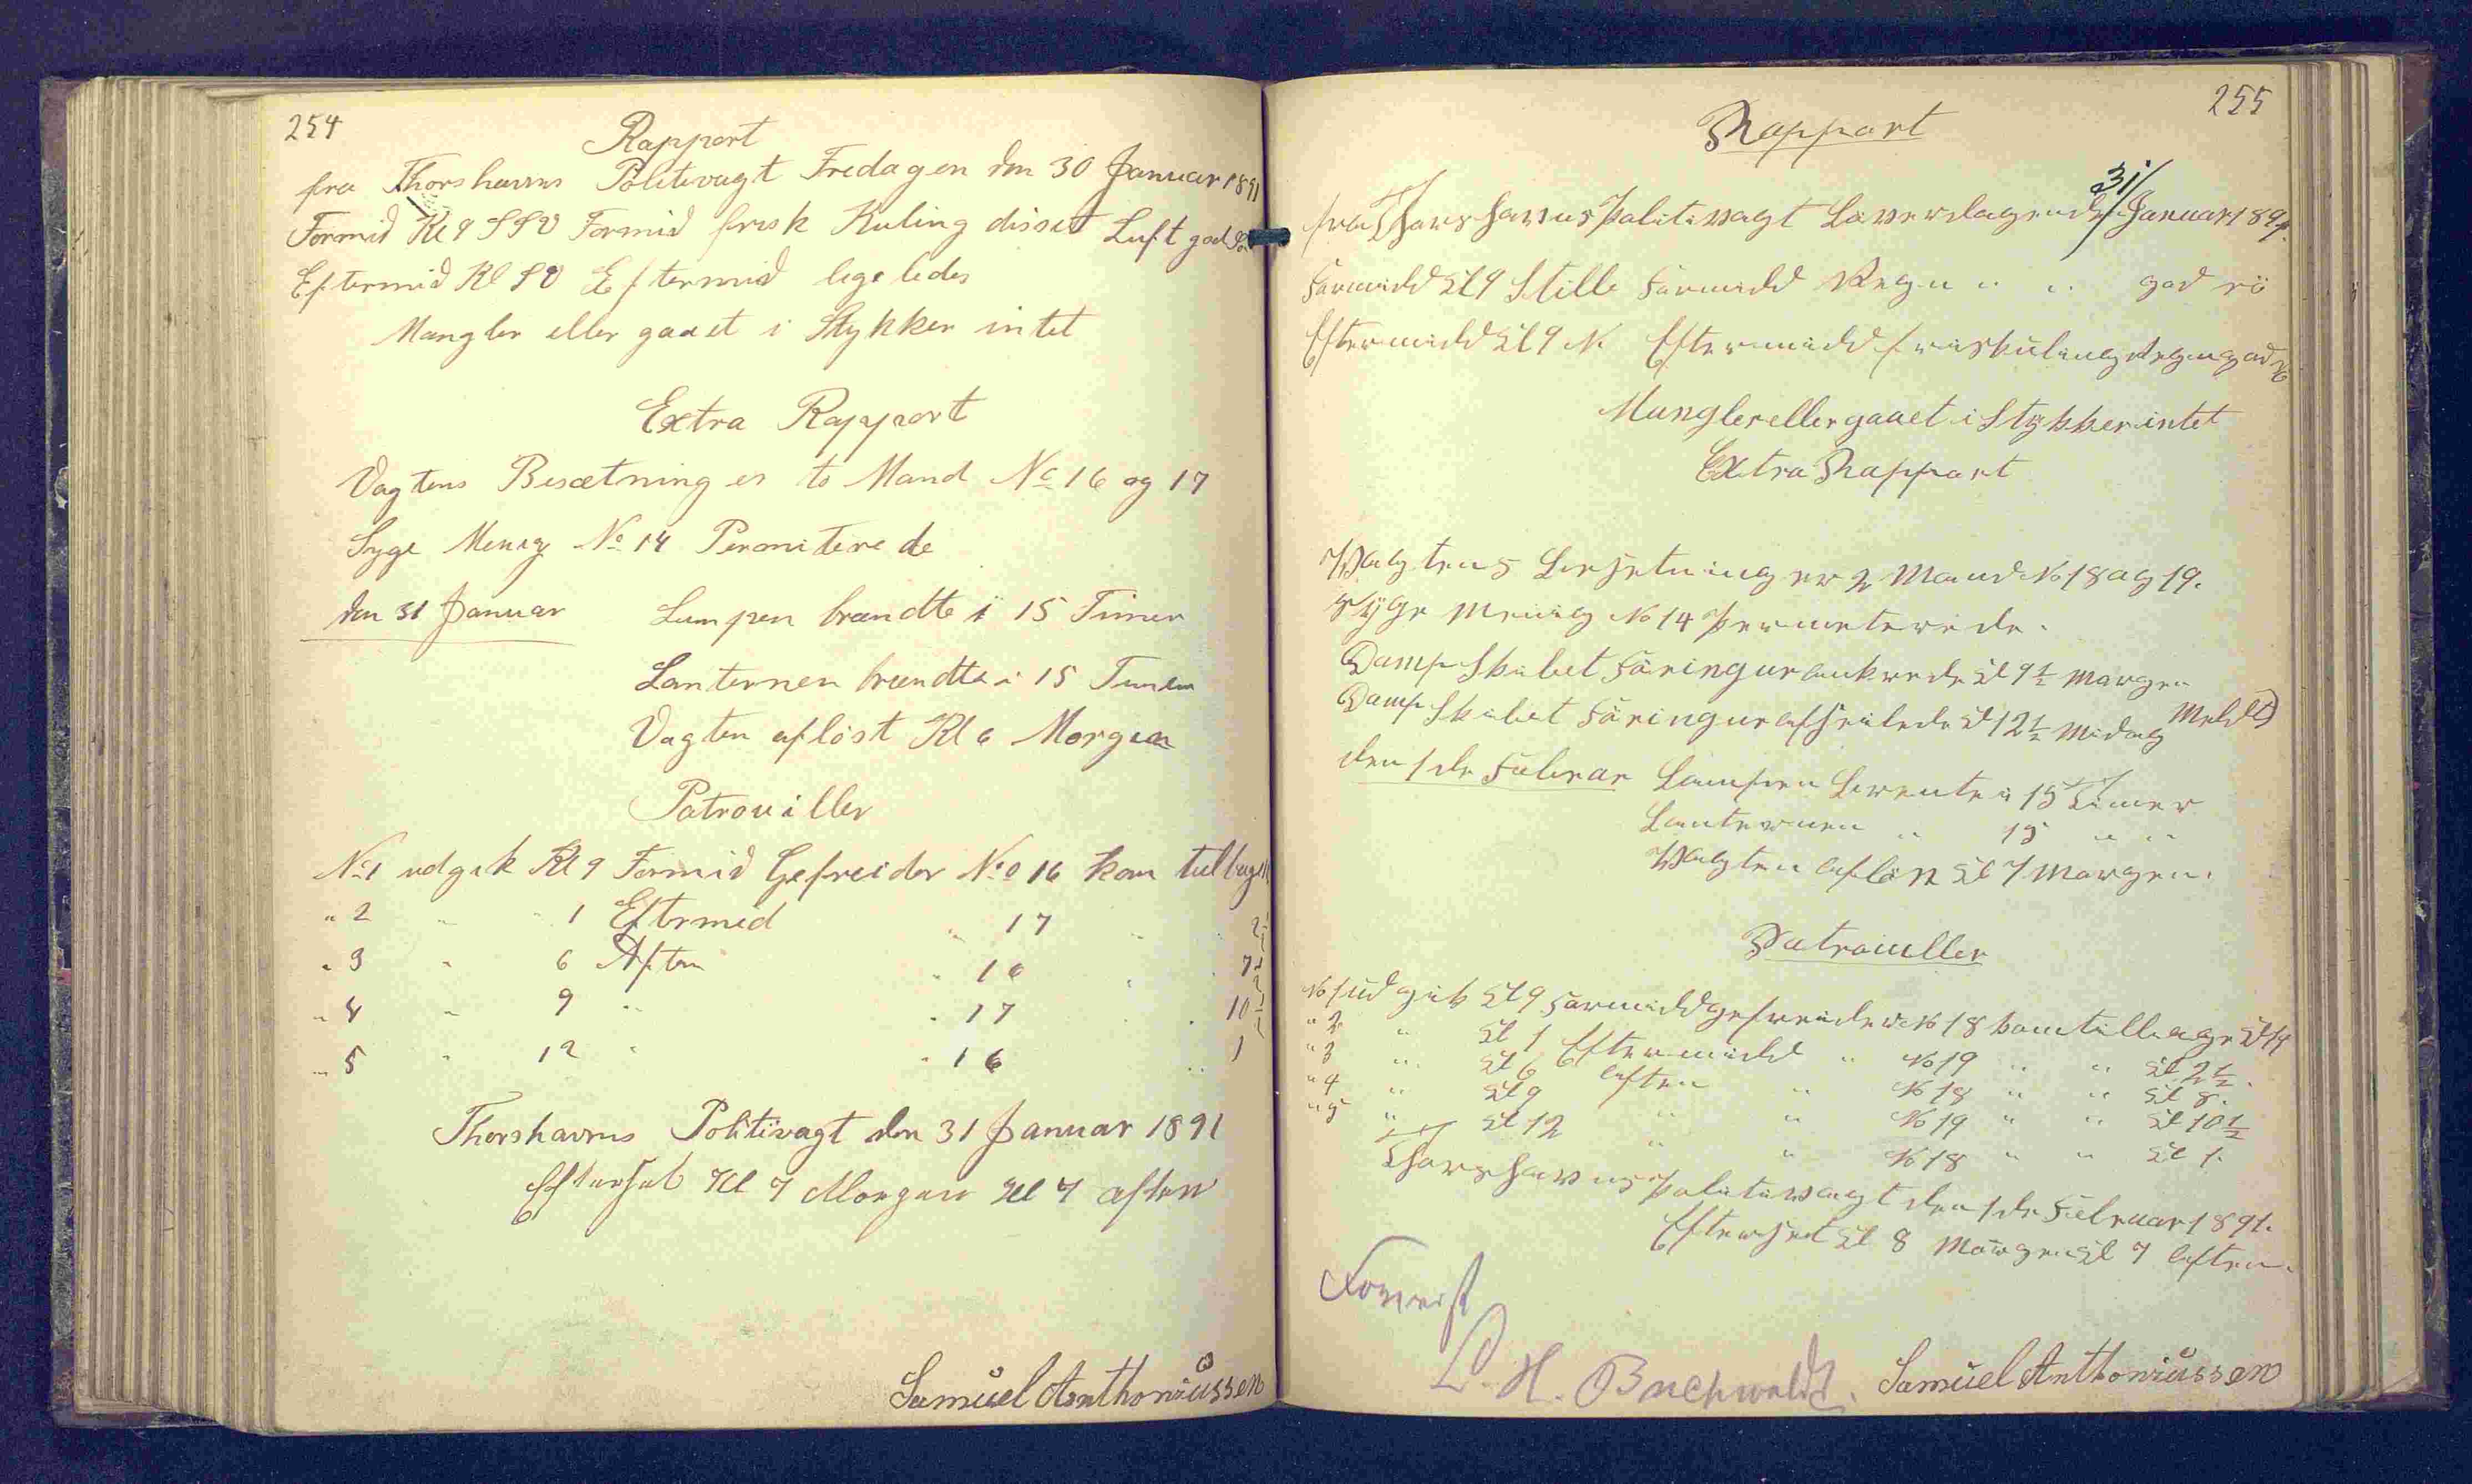 254
Rapport
fra Thorshavns Politivagt Fredagen den 30 Januar 1891
Formid Kl 9 SSV Formid frisk Kuling disset Luft god
Eftermid Kl SV Eftermid lige ledes
Mangler eller gaaet i Stykker intet
Extra Rapport
Vagtens Besætning er to Mand No 16 og 17
Syge Menig No 14 Permiterede
den 31 Januar Lampen brændte i 15 Timer
Lanternen brændte i 15 Timer
Vagten afløst Kl 6 Morgen
Patrouiller
No 1 udgik Kl 9 Formid Gefreider No 16 kom tilbage
" 2 " " 1 Eftrmid " 17 " " 2
" 3 " 6 Aften " 16 " 7
" 4 " 9 " " 17 " 10
" 5 " 12 " " 16 " 1
Thorshavns Politivagt den 31 Januar 1891
Efterset Kl 7 Morgen Kl 7 aften
Samuel Anthoniussen
255
Rapport
31/
fra Thorshavns Politivagt Løverdagen d. Januar 1891.
Formidd Kl 9 Stille Formidd Regn " " god sö
Eftermidd Kl 9 N. Eftermidd frisk kuling Regn god
Mangler eller gaaet i Stykker intet
Extra Rappart
Wagtens Besjetning er 2 Mand No 18 og 19.
Syge Menig No 14 Permeterede.
Damp Skibet Föringur ankrede Kl 9½ Morgen
Damp Skibet Föringur afseilede Kl 12½ Midag Meldt
den 1de Februar Lampen Brente i 15 Timer
Lanternen " 15 " "
Wagten Aflöst Kl 7 Morgen.
Patrouiller
No 1 udgik Kl 9 Formidd Gefreider No 18 kom tilbage Kl 11
" 2 " Kl 1 Eftermidd " No 19 " " Kl 2½.
" 3 " Kl 6 Aften " No 18 " " Kl 8.
" 4 " Kl 9 " " No 19 " " Kl 10½
" 5 " Kl 12 " " No 18 " " Kl 1.
Thorshavns Politivagt den 1de Februar 1891.
Efterset Kl 8 Morgen Kl 7 Aften.
Forevist
L. H. Buchwaldt.
Samuel Anthoniussen